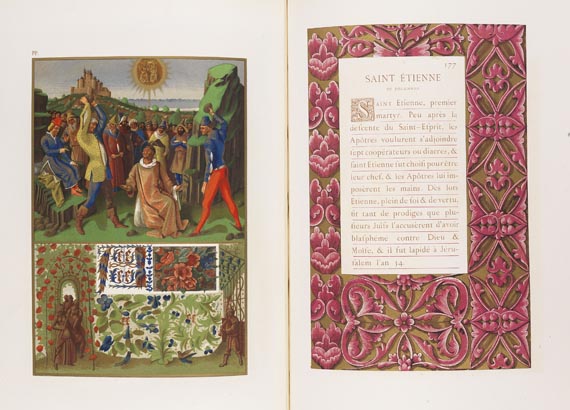 177
SAINT ÉTIENNE
SAINT Etienne, premier
martyr. Peu après la
descente du Saint-Esprit, les
Apôtres voulurent s'adjoindre
sept coopérateurs ou diacres, &
saint Etienne fut choisi pour être
leur chef, & les Apôtres lui im-
posèrent les mains. Dès lors
Etienne, plein de foi & de vertu,
fit tant de prodiges que plu-
sieurs Juifs l'accusèrent d'avoir
blasphémé contre Dieu &
Moïse, & il fut lapidé à Jéru-
salem l'an 34.